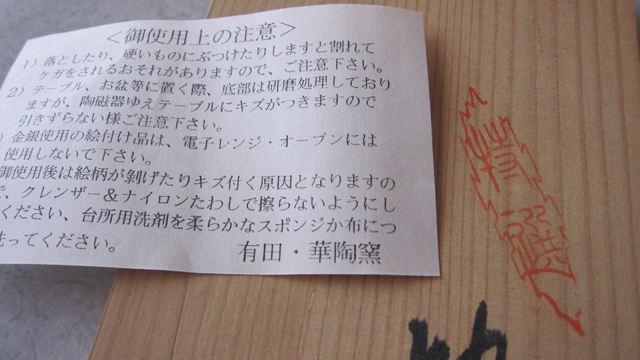 ＜御使用上の注意＞
1）落としたり、硬いものにぶつけたりしますと割れて
ケガをされるおそれがありますので、ご注意下さい。
2）テーブル、お盆等に置く際、底部は研磨処理しており
ますが、陶磁器ゆえテーブルにキズがつきますので
引きずらない様ご注意下さい。
）金銀使用の絵付け品は、電子レンジ・オーブンには
使用しないで下さい。
御使用後は絵柄が剝げたりキズ付く原因となりますの
で、クレンザー＆ナイロンたわしで擦らないようにし
ください、台所用洗剤を柔らかなスポンジか布につ
洗ってください。
有田・華陶窯